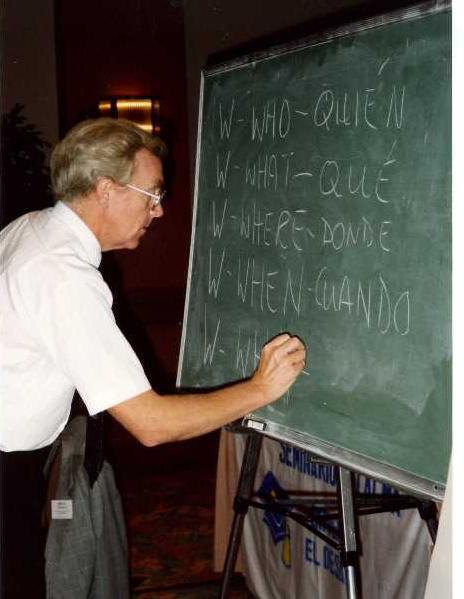 W-WHO-QUIÉN
W-WHAT-QUÉ
W-WHERE-DONDE
W-WHEN-CUANDO
W-WH
SEMINARIO
EL